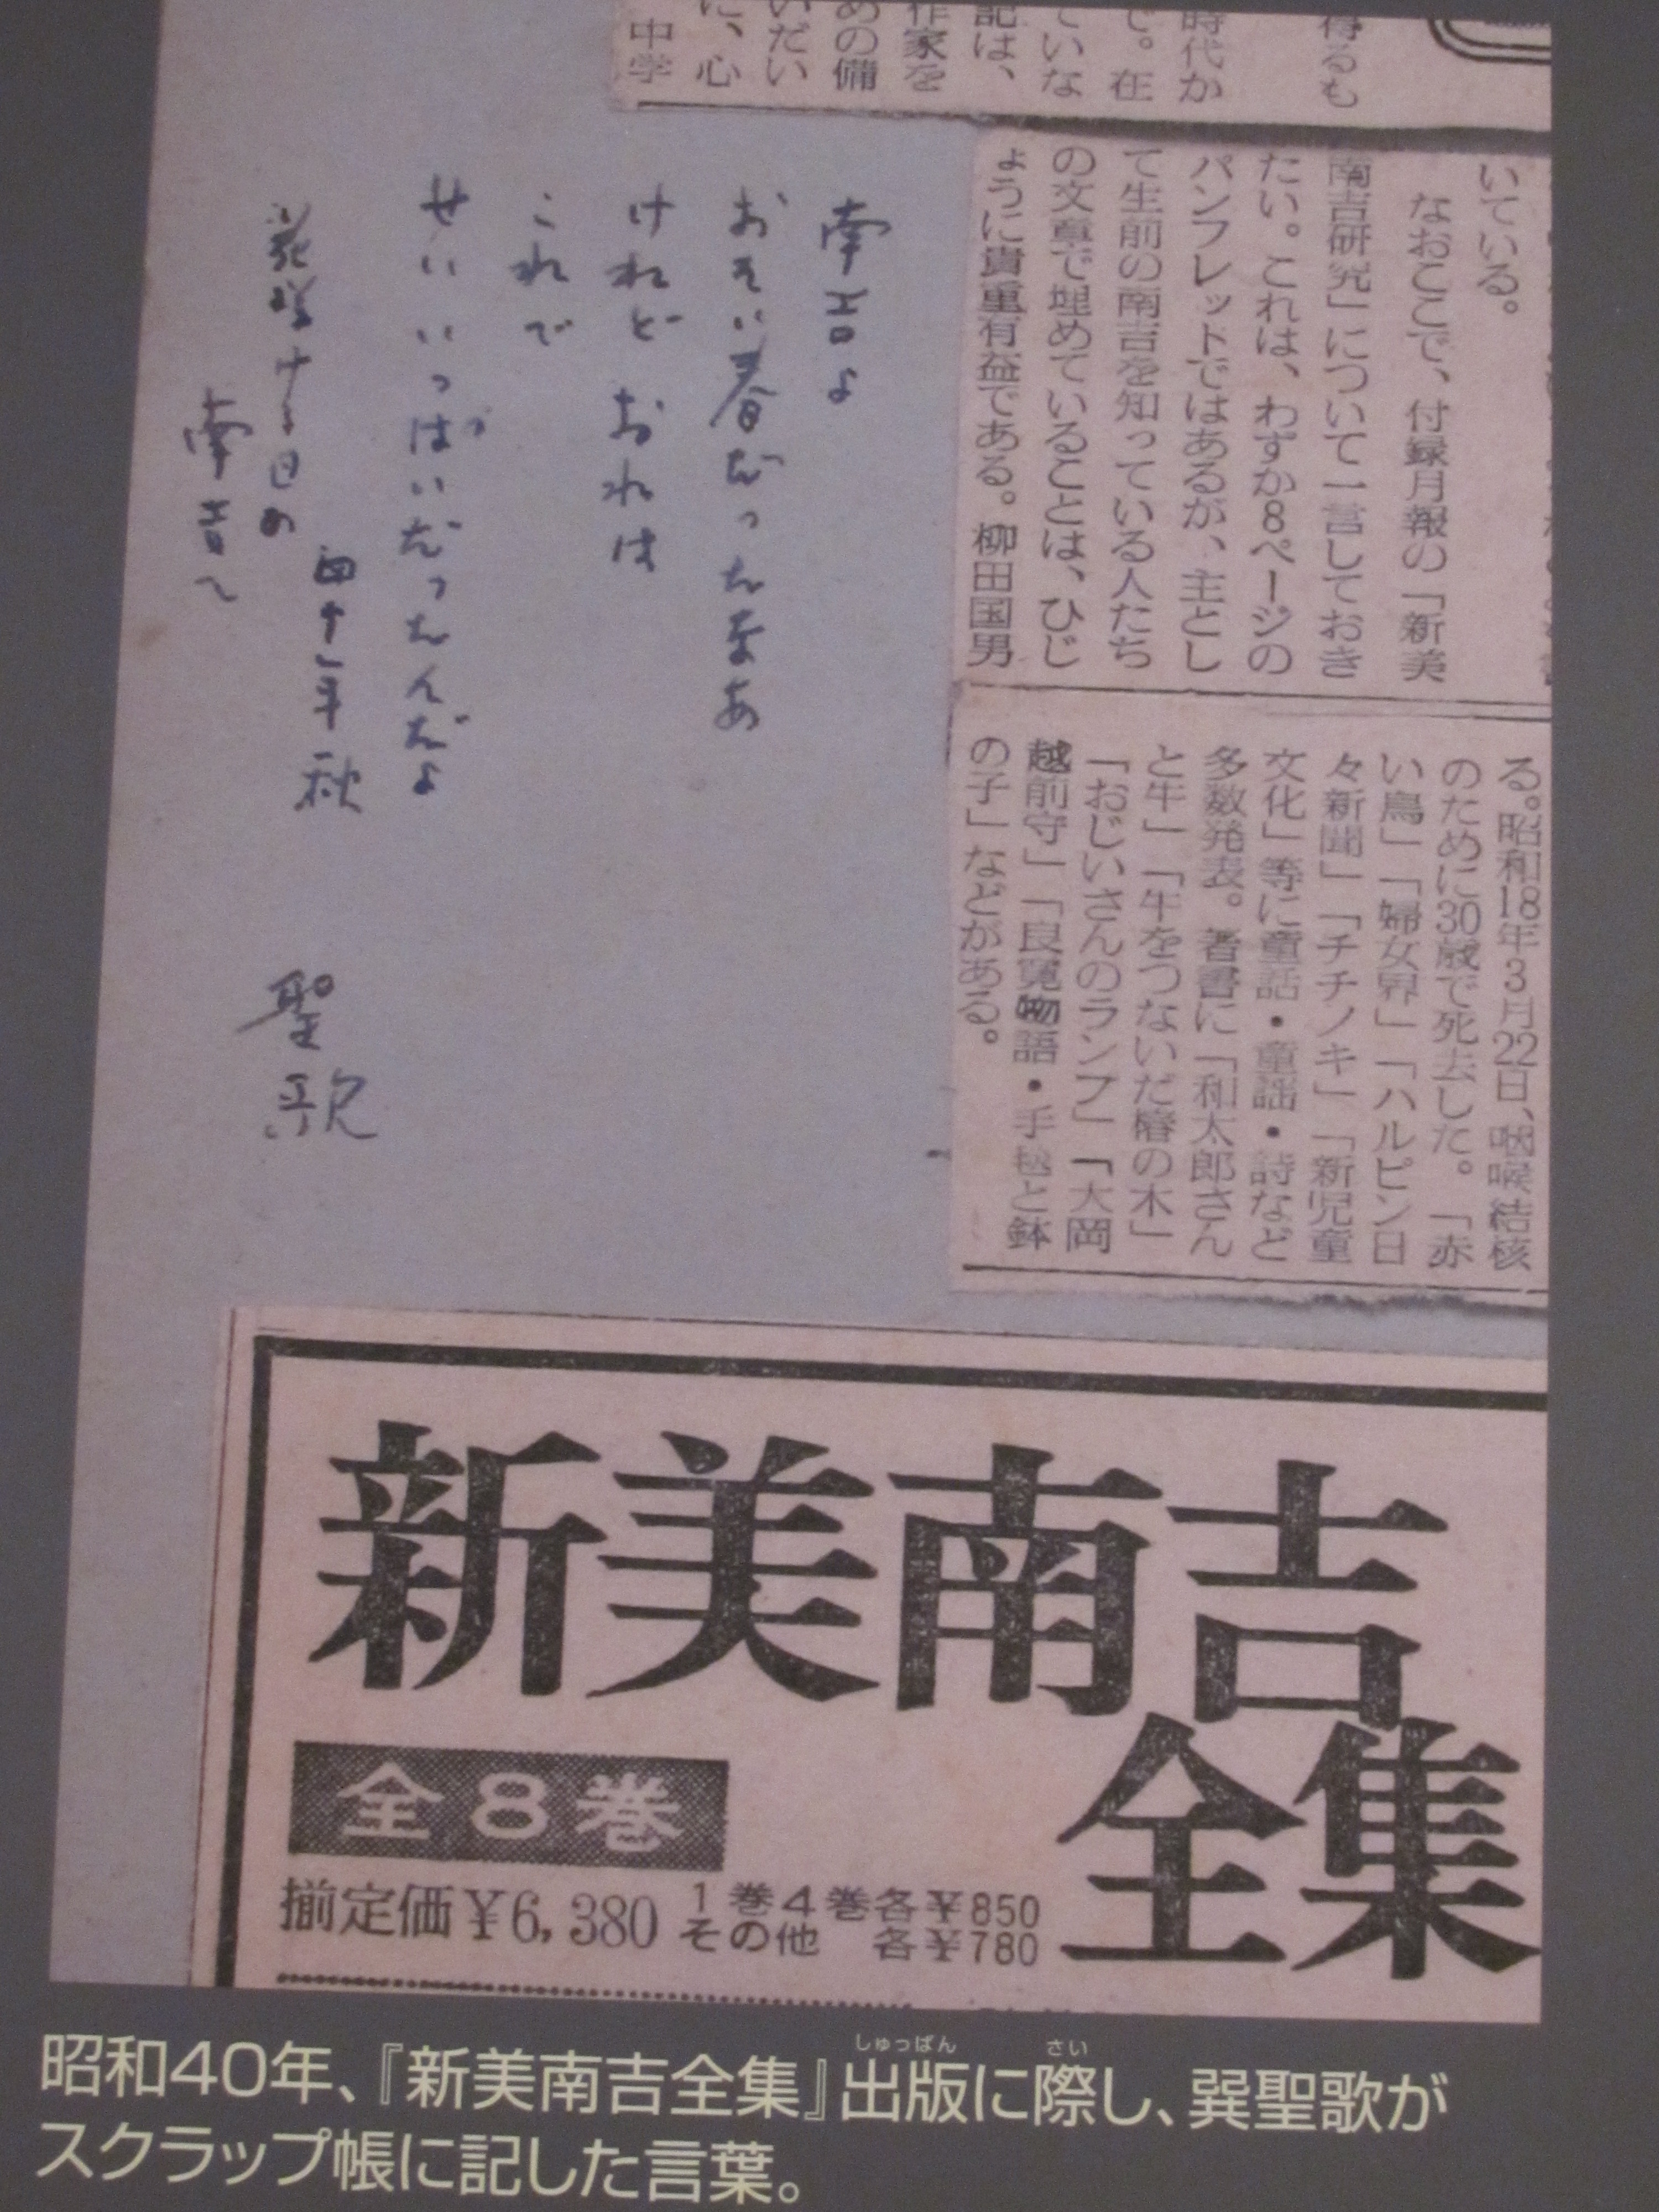 得るも
時代か
で。在
ていな
記は、
作家を
めの備
いだい
に、心
中学
いている。
なおここで、付録月報の「新美
南吉研究」について一言しておき
たい。これは、わずか8ページの
パンフレットではあるが、主とし
て生前の南吉を知っている人たち
の文章で埋めていることは、ひじ
ょうに貴重有益である。柳田国男
る。昭和18年3月22日、咽喉結核
のために30歳で死去した。「赤
い鳥」「婦女界」「ハルピン日
々新聞」「チチノキ」「新児童
文化」等に童話・童謡・詩など
多数発表。著書に「和太郎さん
と牛」「牛をつないだ椿の木」
「おじいさんのランプ」「大岡
越前守」「良寛物語・手毬と鉢
の子」などがある。
南吉よ
おそい春だったなあ
けれど おれは
これで
せいいっぱいだったんだよ
四十年秋
花咲ける日の
南吉へ
聖歌
新美南吉
全集
全8巻
揃定価¥6,380 1巻4巻各¥850
その他 各¥780
しゅっぱん さい
昭和40年、『新美南吉全集』出版に際し、巽聖歌が
スクラップ帳に記した言葉。